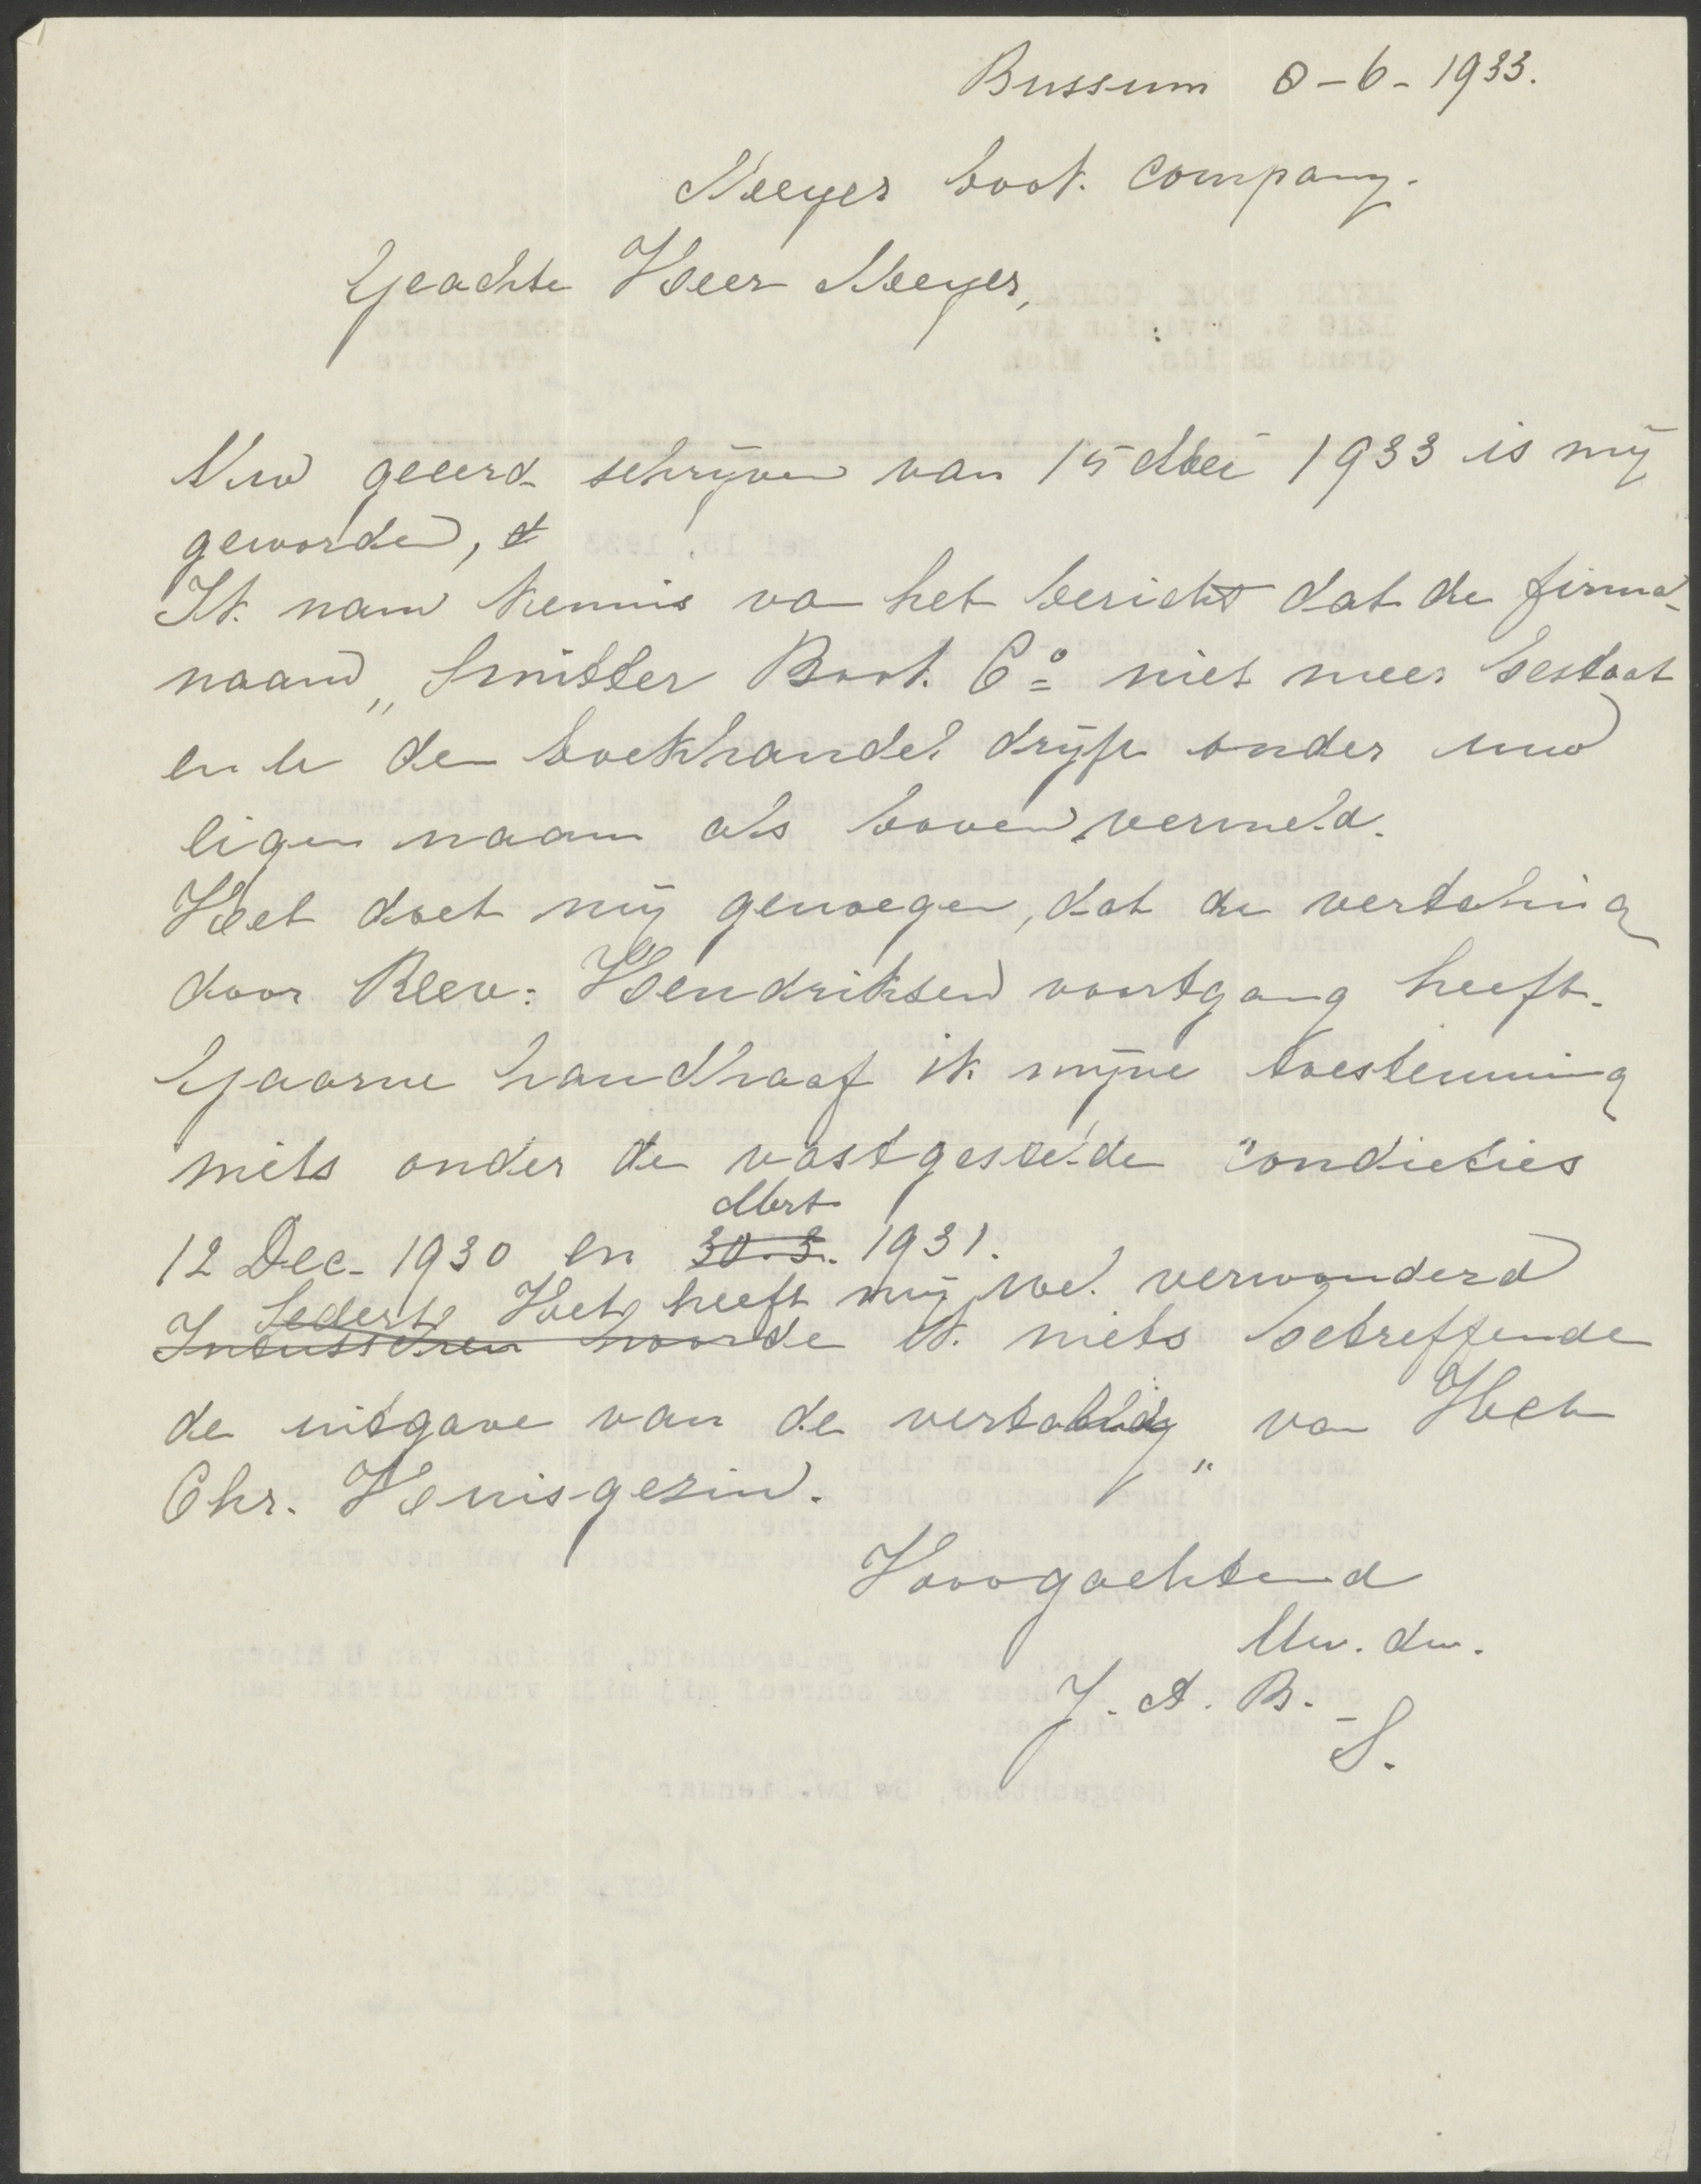 Bussum 8-6-1933.
Meyer book company.
Geachte Heer Meyer,
Uw geeerd schrijven van 15 Mei 1933 is mij
geworden,
Ik nam kennis van het bericht dat de firma-
naam „Smitter Book Co niet meer bestaat
en u den boekhandel drijft onder uw
eigen naam als boven vermeld.
Het doet mij genoegen, dat de vertaling
door Rev: Hendriksen voortgang heeft.
Gaarne handhaaf ik mijne toestemming
mits onder de vastgestelde condicties
Mrt
12 Dec. 1930 en 30.3. 1931.
Sedert Het heeft mij wel verwonderd
Intusschen hoorde ik niets betreffende
de uitgave van de vertaling van „Het
Chr. Huisgezin.
Hoogachtend
Uw. dw.
J. A. B.-
S.